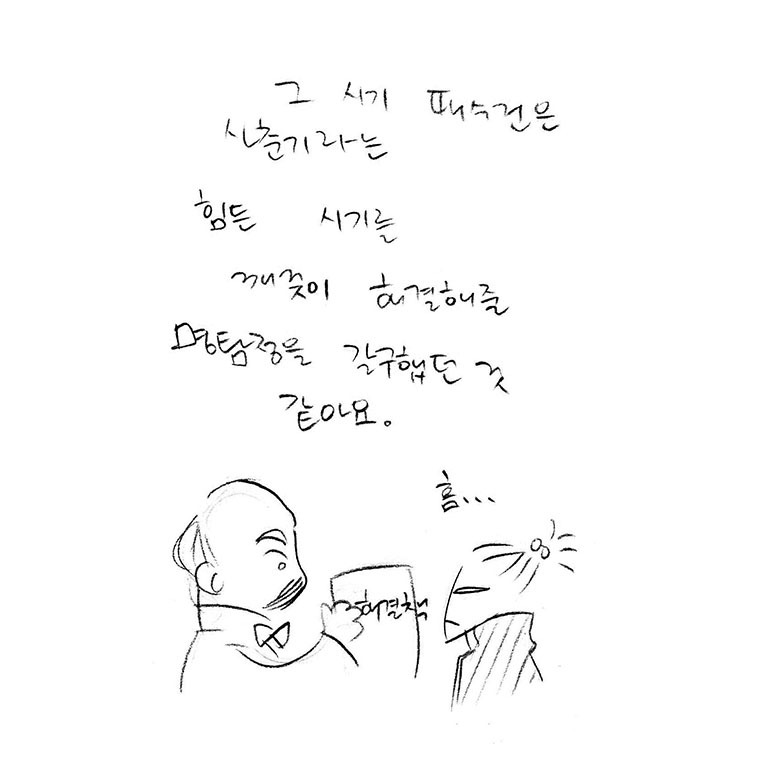 그 시기 패수건은
사춘기라는
힘든 시기를
깨끗이 해결해줄
명탐정을 갈구했던 것
같아요.
흠...
해결책